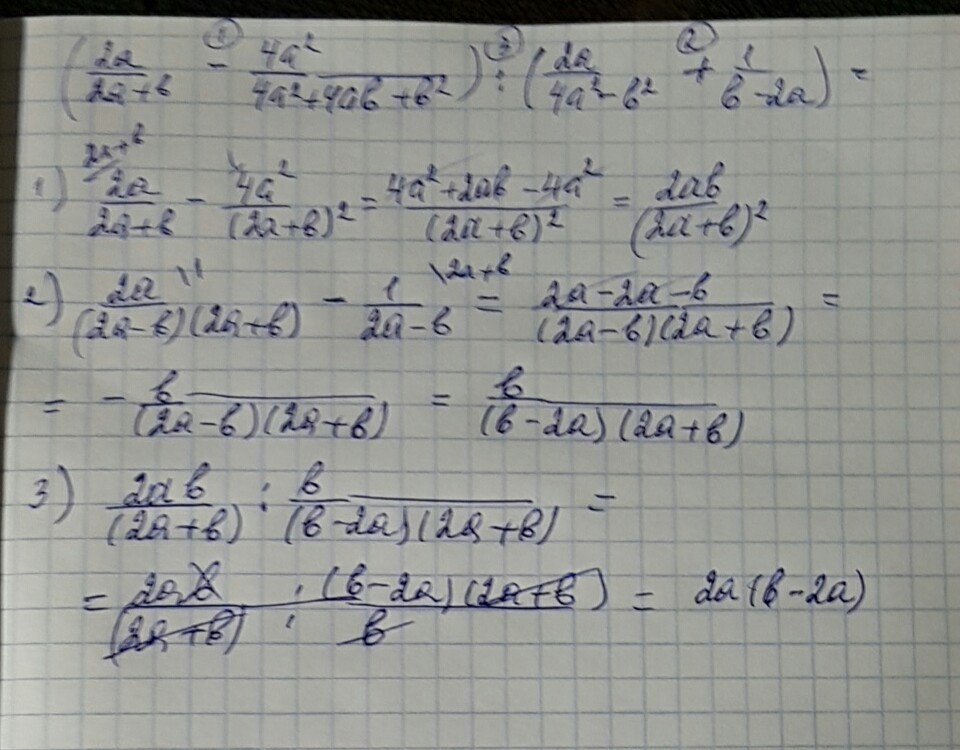 (2a/(2a+b) - 4a²/(4a²+4ab+b²)) : (2a/(4a²-b²) + 1/(b-2a)) =
1) 2a/(2a+b) - 4a²/(2a+b)² = (4a²+2ab-4a²)/(2a+b)² = 2ab/(2a+b)²
2) 2a/((2a-b)(2a+b)) - 1/(2a-b) = (2a-2a-b)/((2a-b)(2a+b)) =
= - b/((2a-b)(2a+b)) = b/((b-2a)(2a+b))
3) 2ab/(2a+b) : b/((b-2a)(2a+b)) =
= 2ab/(2a+b) · (b-2a)(2a+b)/b = 2a(b-2a)